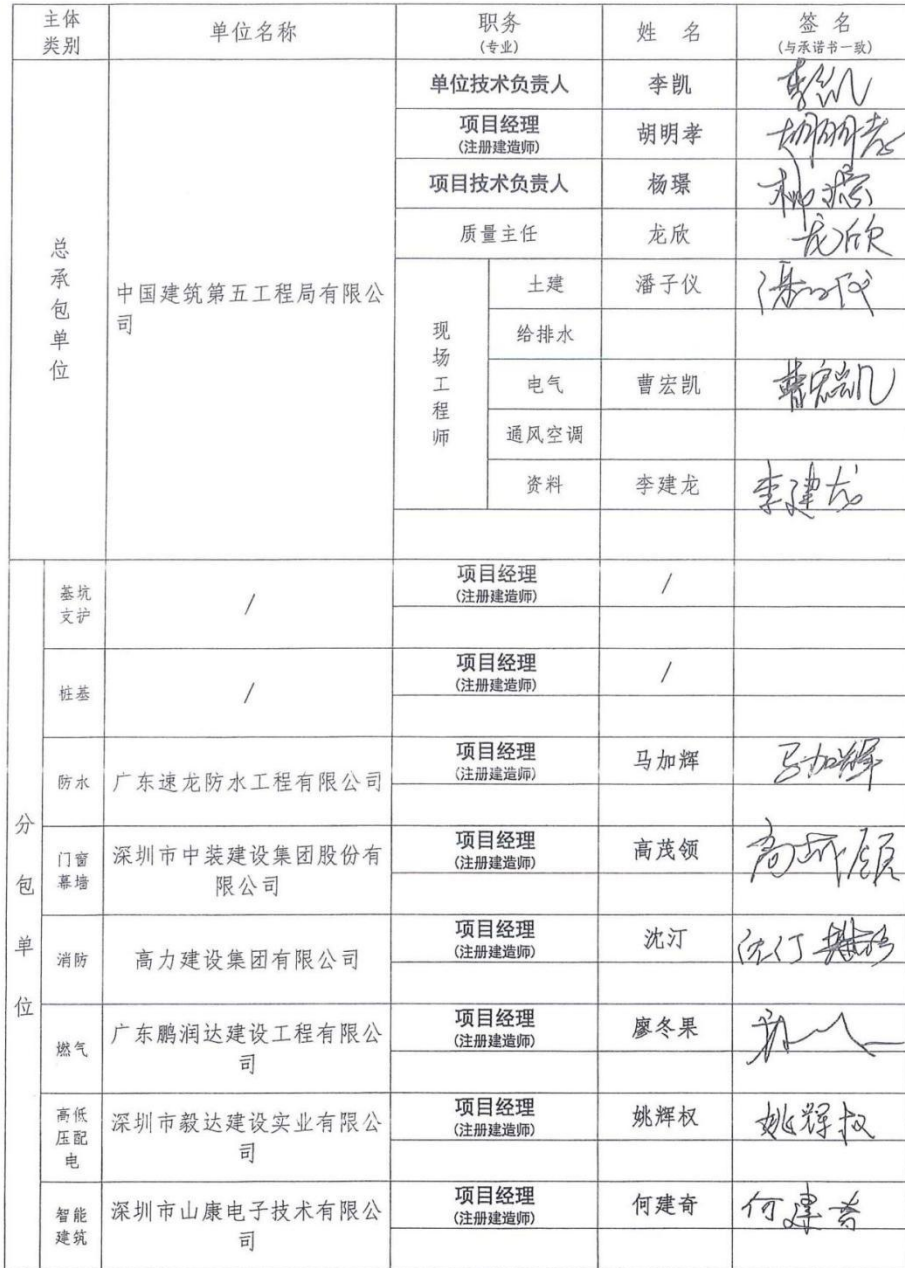 主体类别 单位名称 职务(专业) 姓 名 签 名(与承诺书一致)
总承包单位 中国建筑第五工程局有限公司
单位技术负责人 李凯 李凯
项目经理(注册建造师) 胡明孝 胡明孝
项目技术负责人 杨璟 杨璟
质量主任 龙欣 龙欣
现场工程师
土建 潘子仪 潘子仪
给排水
电气 曹宏凯 曹宏凯
通风空调
资料 李建龙 李建龙
分包单位
基坑支护 / 项目经理(注册建造师) /
桩基 / 项目经理(注册建造师) /
防水 广东速龙防水工程有限公司 项目经理(注册建造师) 马加辉 马加辉
门窗幕墙 深圳市中装建设集团股份有限公司 项目经理(注册建造师) 高茂领 高茂领
消防 高力建设集团有限公司 项目经理(注册建造师) 沈汀 沈汀
燃气 广东鹏润达建设工程有限公司 项目经理(注册建造师) 廖冬果
高低压配电 深圳市毅达建设实业有限公司 项目经理(注册建造师) 姚辉权 姚辉权
智能建筑 深圳市山康电子技术有限公司 项目经理(注册建造师) 何建奇 何建奇